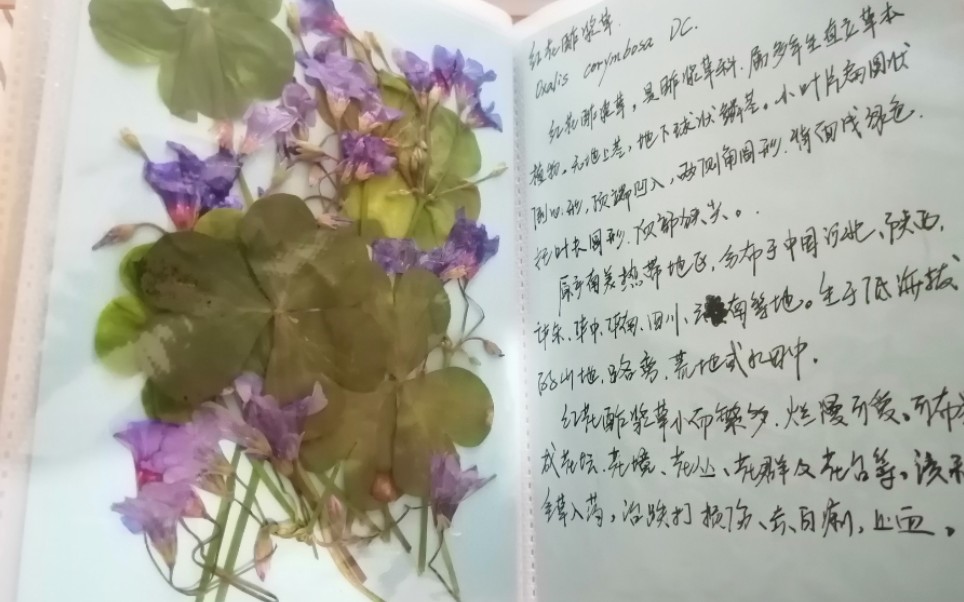 红花酢浆草
Oxalis corymbosa DC.
红花酢浆草，是酢浆草科，属多年生直立草本
植物。无地上茎，地下球状鳞茎。小叶片扁圆状
倒心形，顶端凹入，两侧角圆形，背面浅绿色．
托叶长圆形，顶部狭尖。
原产南美热带地区，分布于中国河北、陕西，
华东、华中、华南、四川、云南等地。生于低海拔
的山地，路旁，荒地或水田中．
红花酢浆草小而繁多，烂漫可爱。可布
成花坛、花境、花丛、花群及花台等。该
全草入药，治跌打损伤、赤白痢，止血。